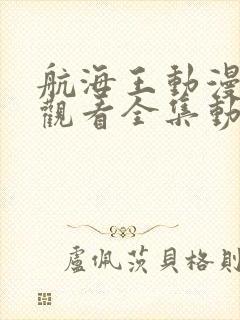 航海王動漫
觀看全集動
盧佩茨貝格則